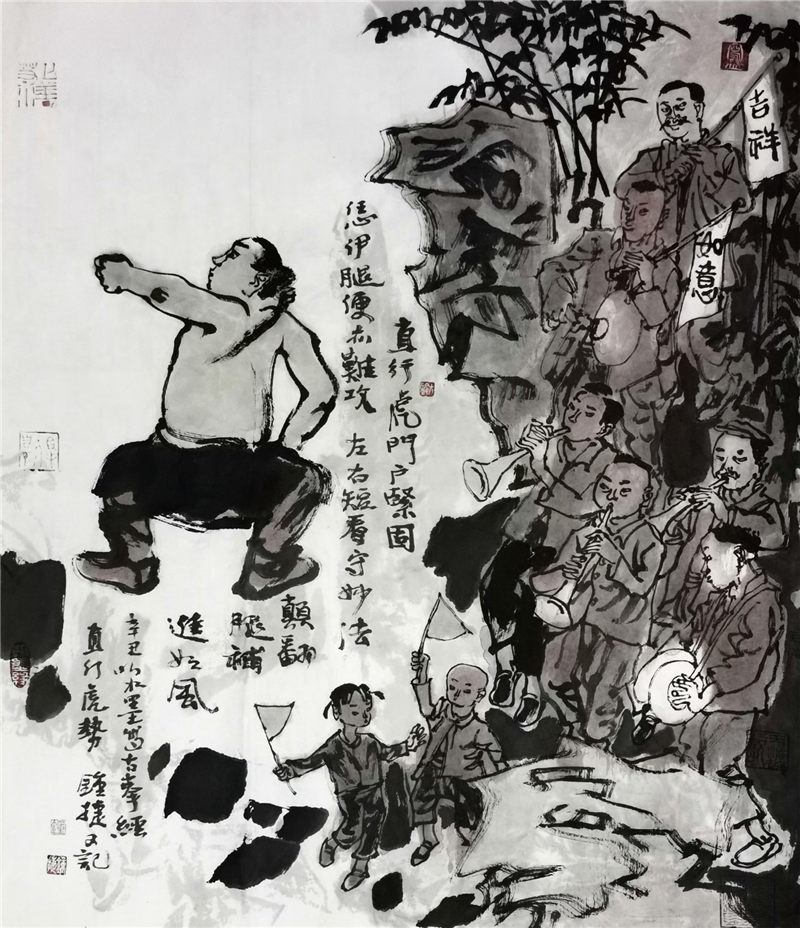 吉祥
如意
直行虎門戶緊固
恁伊腿便亦難攻 左右短看守妙法
顛翻
腿補
進如風
辛丑以水墨寫古拳經
直行虎勢 鍾捷又記